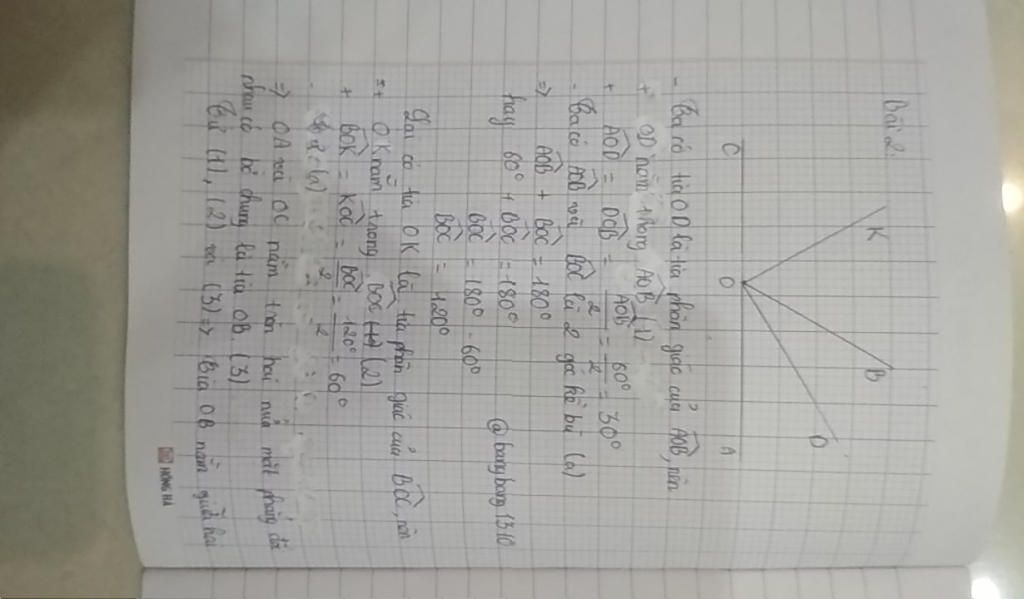 Bài 2:
C O A
K B D
- Ta có tia OD là tia phân giác của AOB, nên
+ OD nằm trong AOB (1)
+ AOD = DOB = AOB/2 = 60°/2 = 30°
- Ta có AOB và BOC là 2 góc kề bù (a)
=> AOB + BOC = 180°
hay 60° + BOC = 180°
BOC = 180° - 60°
BOC = 120°
@bangbang1310
Lại có tia OK là tia phân giác của BOC, nên
+ OK nằm trong BOC (2)
+ BOK = KOC = BOC/2 = 120°/2 = 60°
(a)
=> OA và OC nằm trên hai nửa mặt phẳng đối
nhau có bờ chung là tia OB. (3)
Từ (1), (2) và (3) => tia OB nằm giữa hai
HỒNG HÀ